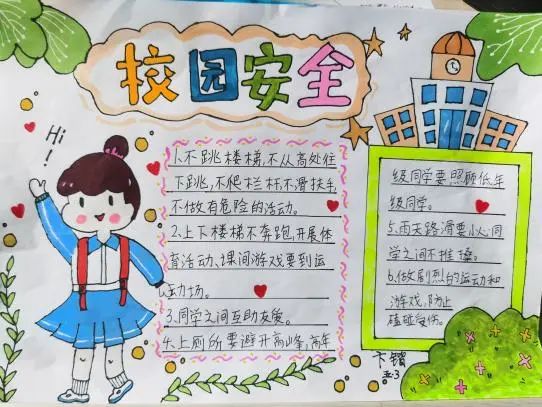 校园安全
Hi!
1.不跳楼梯,不从高处往
下跳,不爬栏杆不滑扶手,
不做有危险的活动。
2.上下楼梯不奔跑,开展体
育活动、课间游戏要到运
动场。
3.同学之间互助友爱。
4.上厕所要避开高峰,高年
级同学要照顾低年
级同学。
5.雨天路滑要小心,同
学之间不推搡。
6.做剧烈的运动和
游戏,防止
磕碰受伤。
五.3